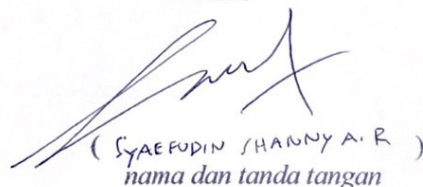 ( SYAEFUDIN SHANNY A.R )
nama dan tanda tangan